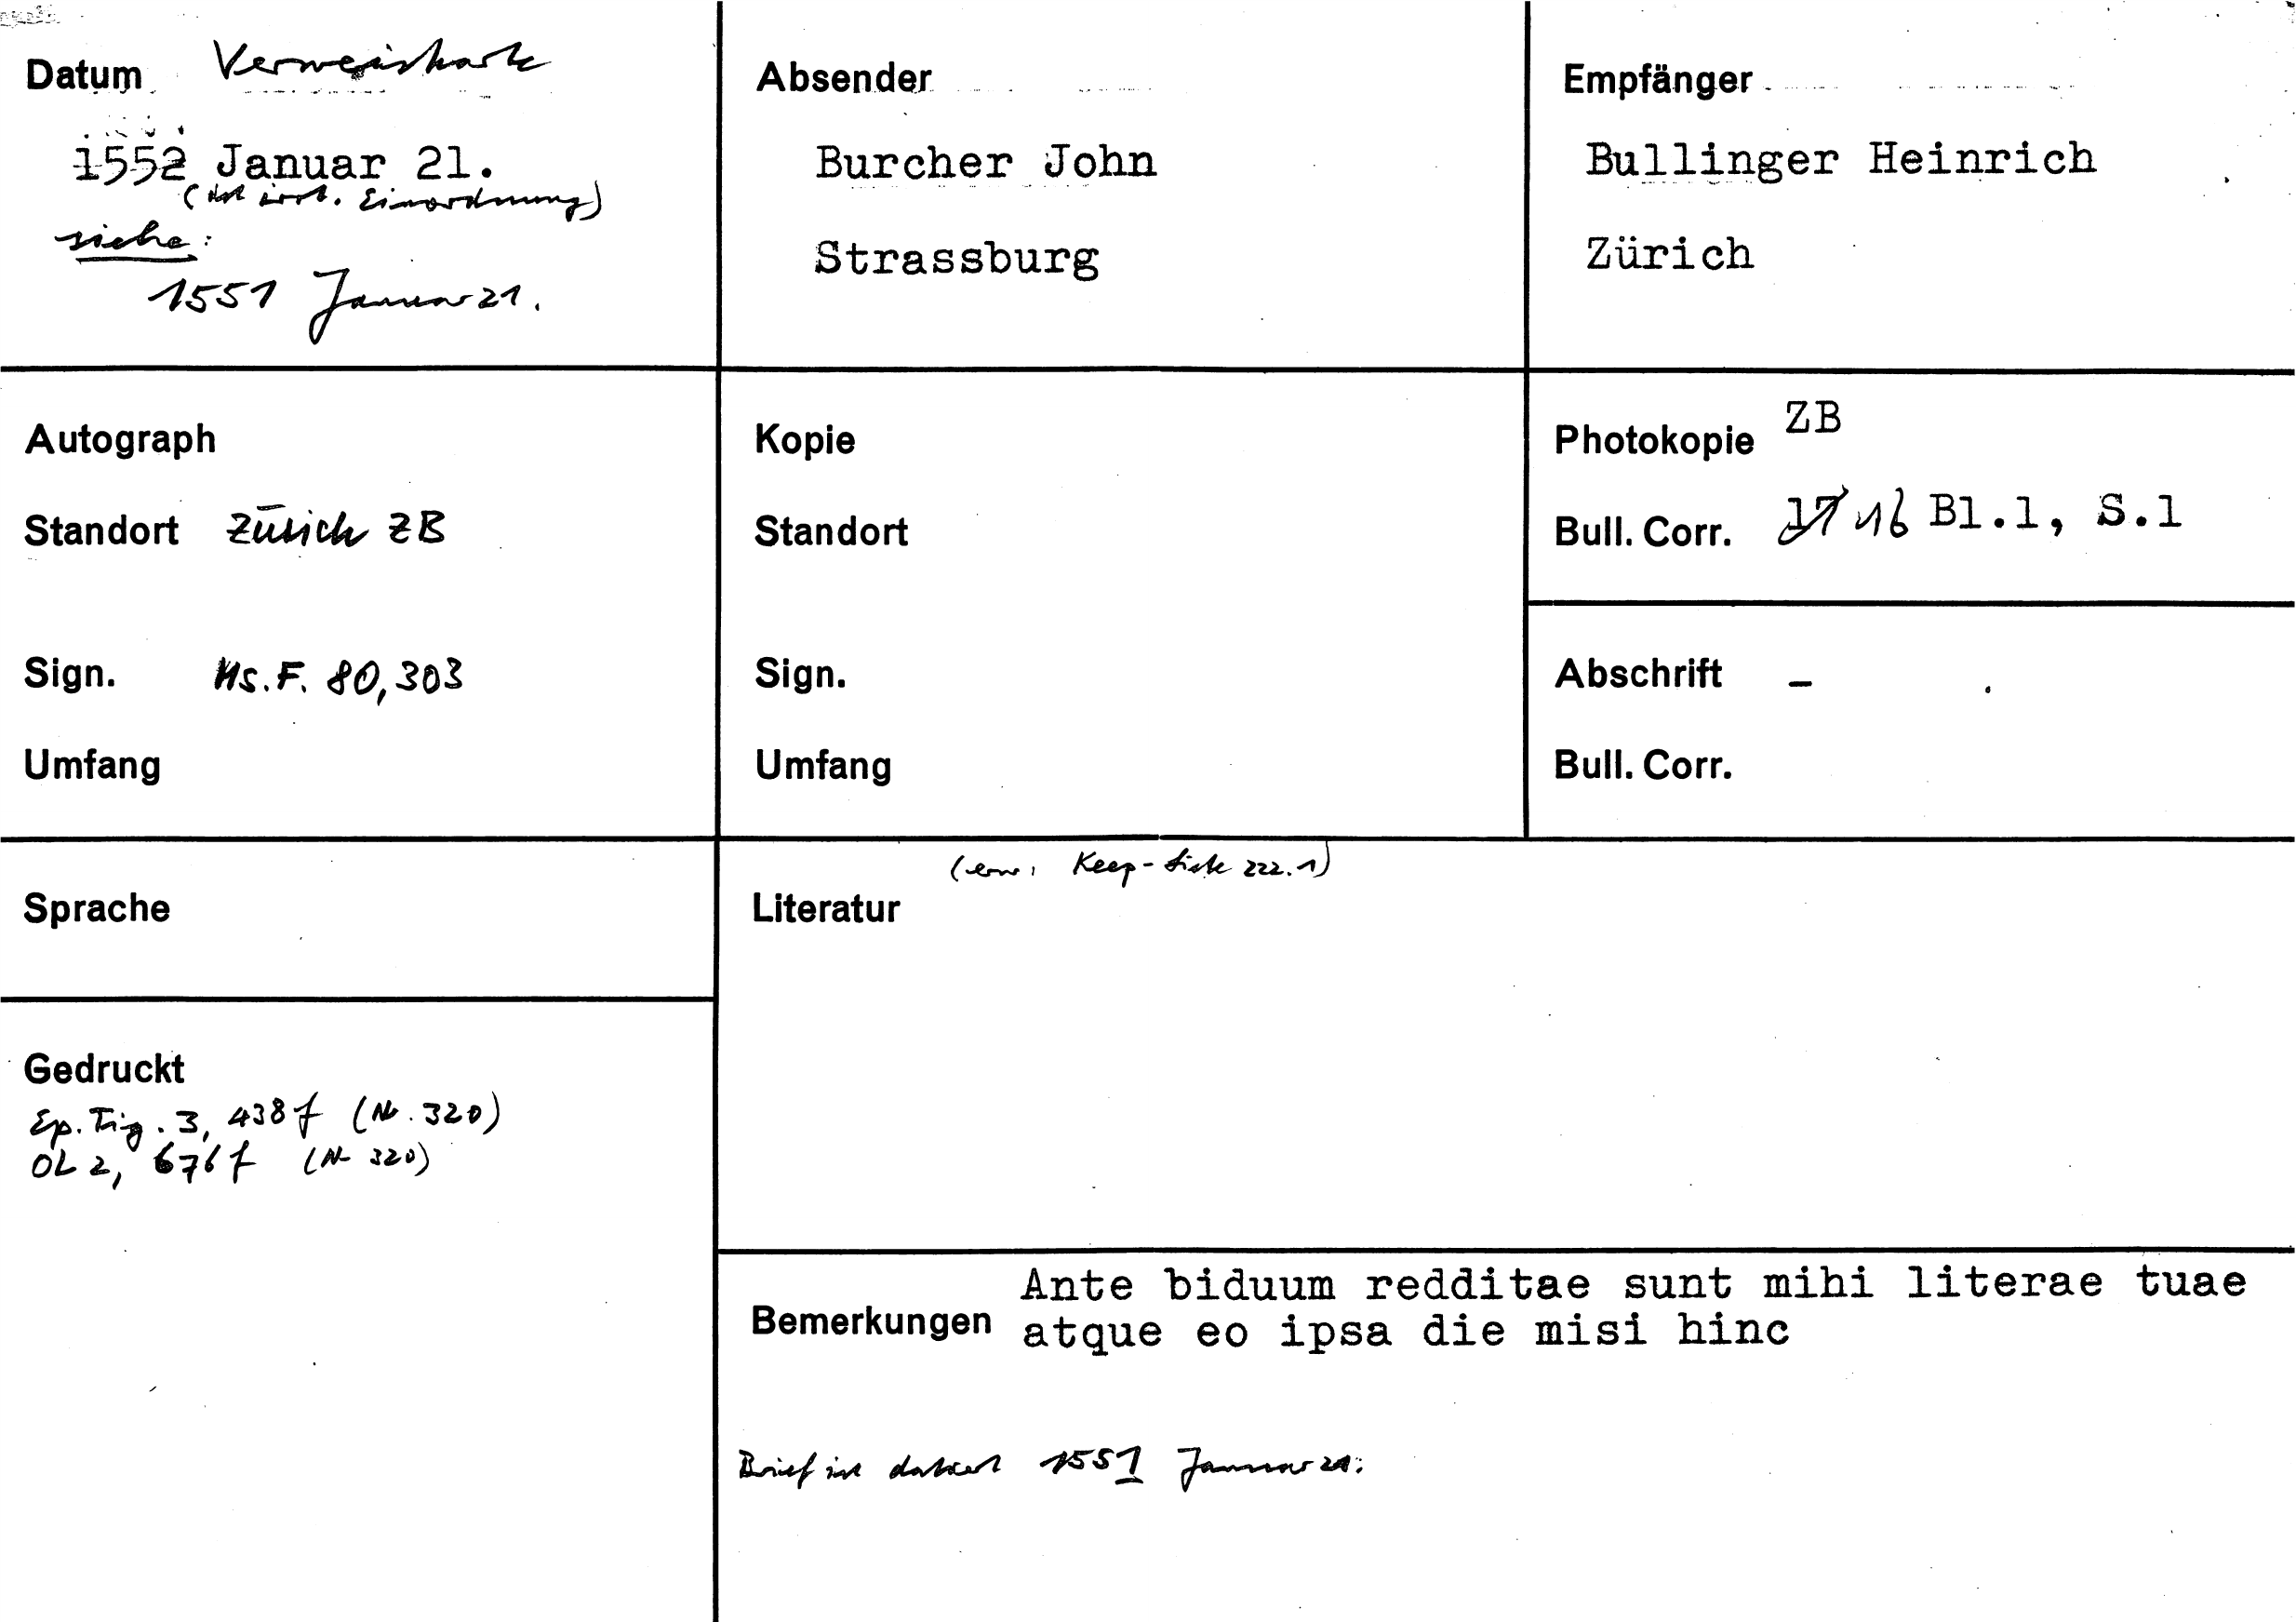 Datum Verweiskarte
1552 Januar 21.
( irrt. Einordnung)
siehe:
1551 Januar 21.
Absender
Burcher John
Strassburg
Empfänger
Bullinger Heinrich
Zürich
Autograph
Standort Zürich ZB
Sign. Hs.F. 80,303
Umfang
Kopie
Standort
Sign.
Umfang
Photokopie ZB
Bull. Corr. 17 16 Bl.1, S.1
Abschrift –
Bull. Corr.
Sprache
Gedruckt
Ep. Tig. 3, 438f (Nr. 320)
OL 2, 676f (Nr 320)
(erw: Keep-Liste 222.1)
Literatur
Bemerkungen Ante biduum redditae sunt mihi literae tuae
atque eo ipsa die misi hinc
Brief ist datiert 1551 Januar 21.